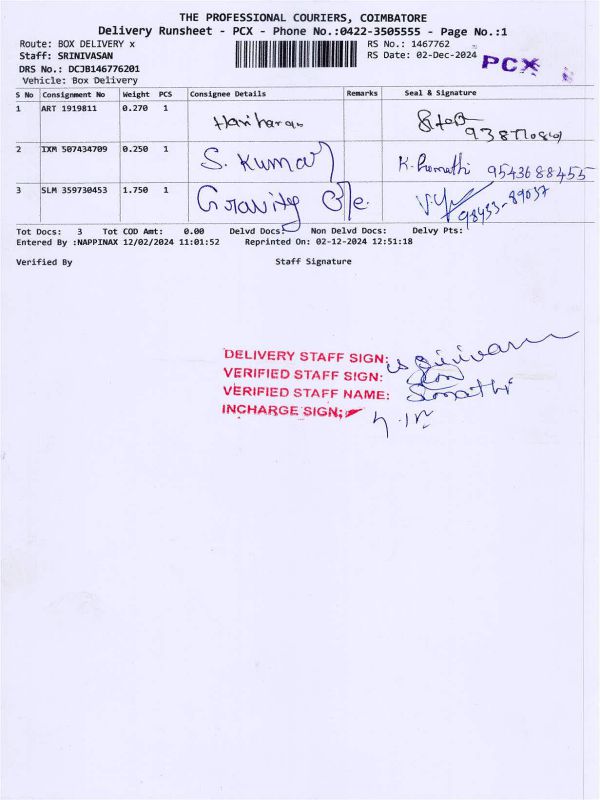 THE PROFESSIONAL COURIERS, COIMBATORE
Delivery Runsheet - PCX - Phone No.:0422-3505555 - Page No.:1
Route: BOX DELIVERY x
RS No.: 1467762
Staff: SRINIVASAN
RS Date: 02-Dec-2024
PCX
DRS No.: DCJB146776201
Vehicle: Box Delivery
S No Consignment No Weight PCS Consignee Details Remarks Seal & Signature
1 ART 1919811 0.270 1 Hariharan
2 IXM 507434709 0.250 1 S. Kumar 9543688455
3 SLM 359730453 1.750 1 Gravity 98433-89037
Tot Docs: 3 Tot COD Amt: 0.00 Delvd Docs: Non Delvd Docs: Delvy Pts:
Entered By :NAPPINAX 12/02/2024 11:01:52 Reprinted On: 02-12-2024 12:51:18
Verified By Staff Signature
DELIVERY STAFF SIGN:
VERIFIED STAFF SIGN:
VERIFIED STAFF NAME:
INCHARGE SIGN: